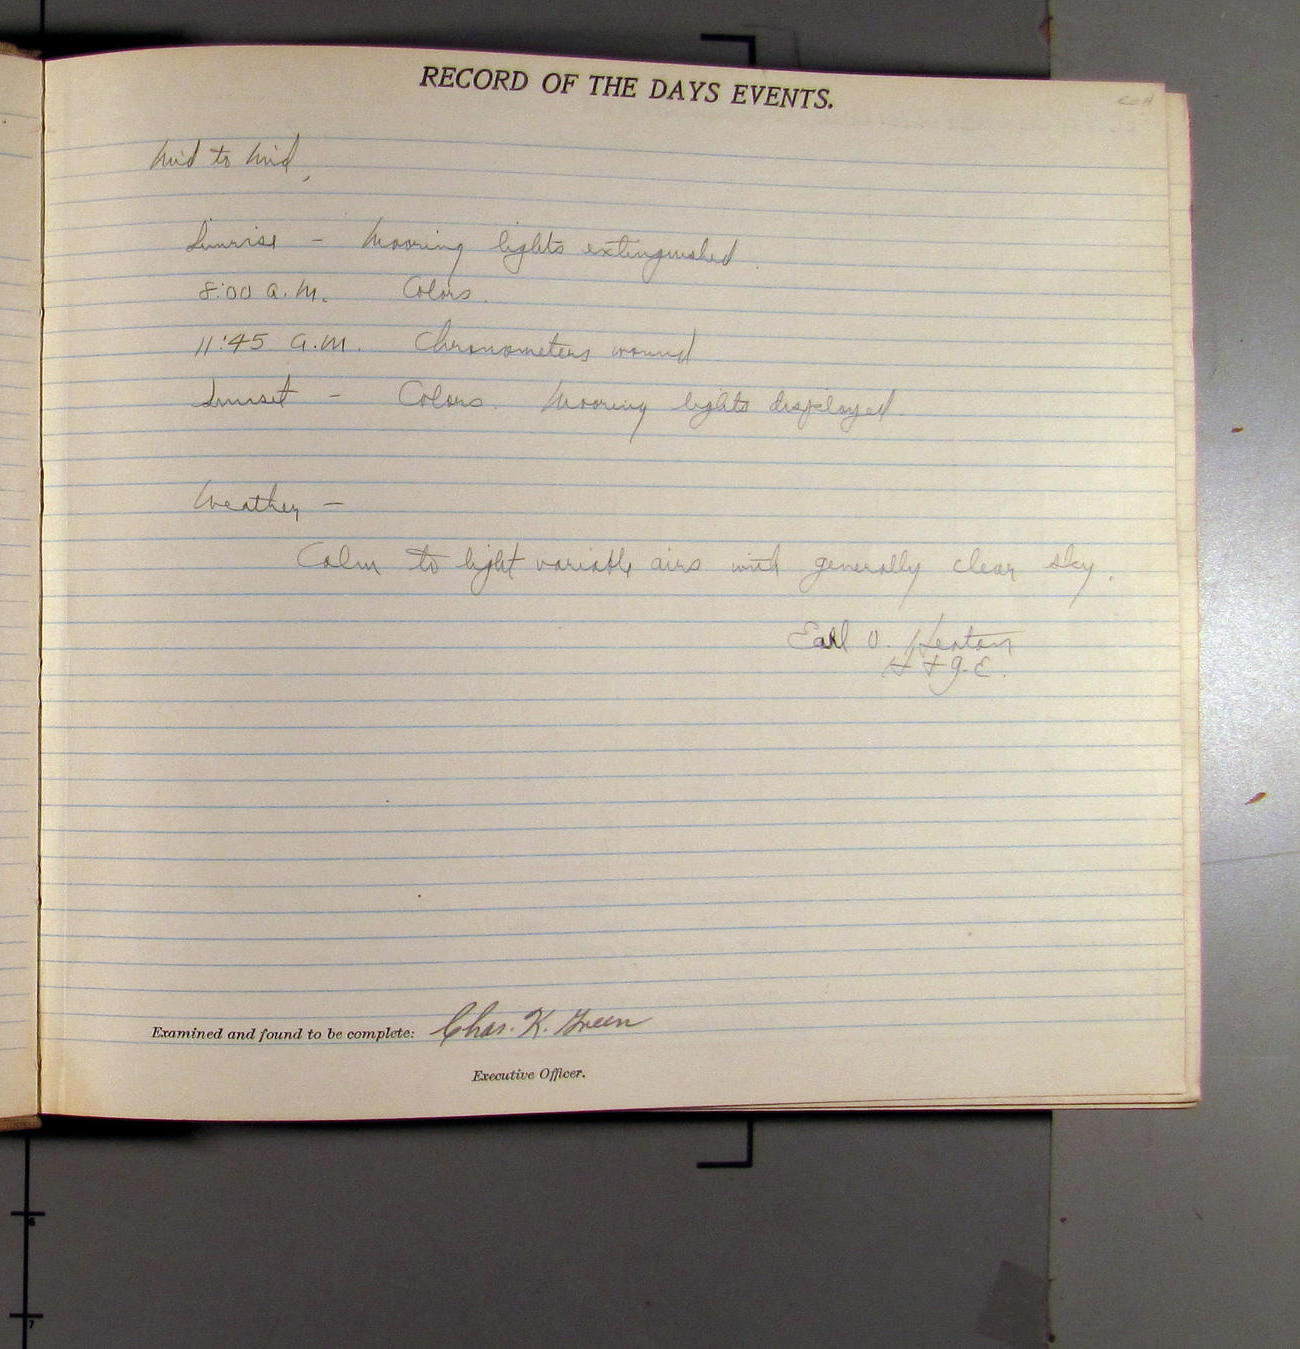 RECORD OF THE DAYS EVENTS.
Mid to Mid,
Sunrise – Mooring lights extinguished.
8:00 A.M. Colors.
11:45 A.M. Chronometers wound
Sunset – Colors. Mooring lights displayed.
Weather –
Calm to light variable airs with generally clear sky.
Earl O. Heaton
H & G. E.
Examined and found to be complete: Chas. K. Green
Executive Officer.
6
7